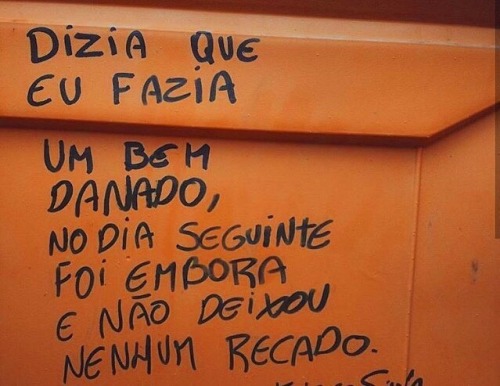 DIZIA QUE
EU FAZIA
UM BEM
DANADO,
NO DIA SEGUINTE
FOI EMBORA
E NÃO DEIXOU
NENHUM RECADO.